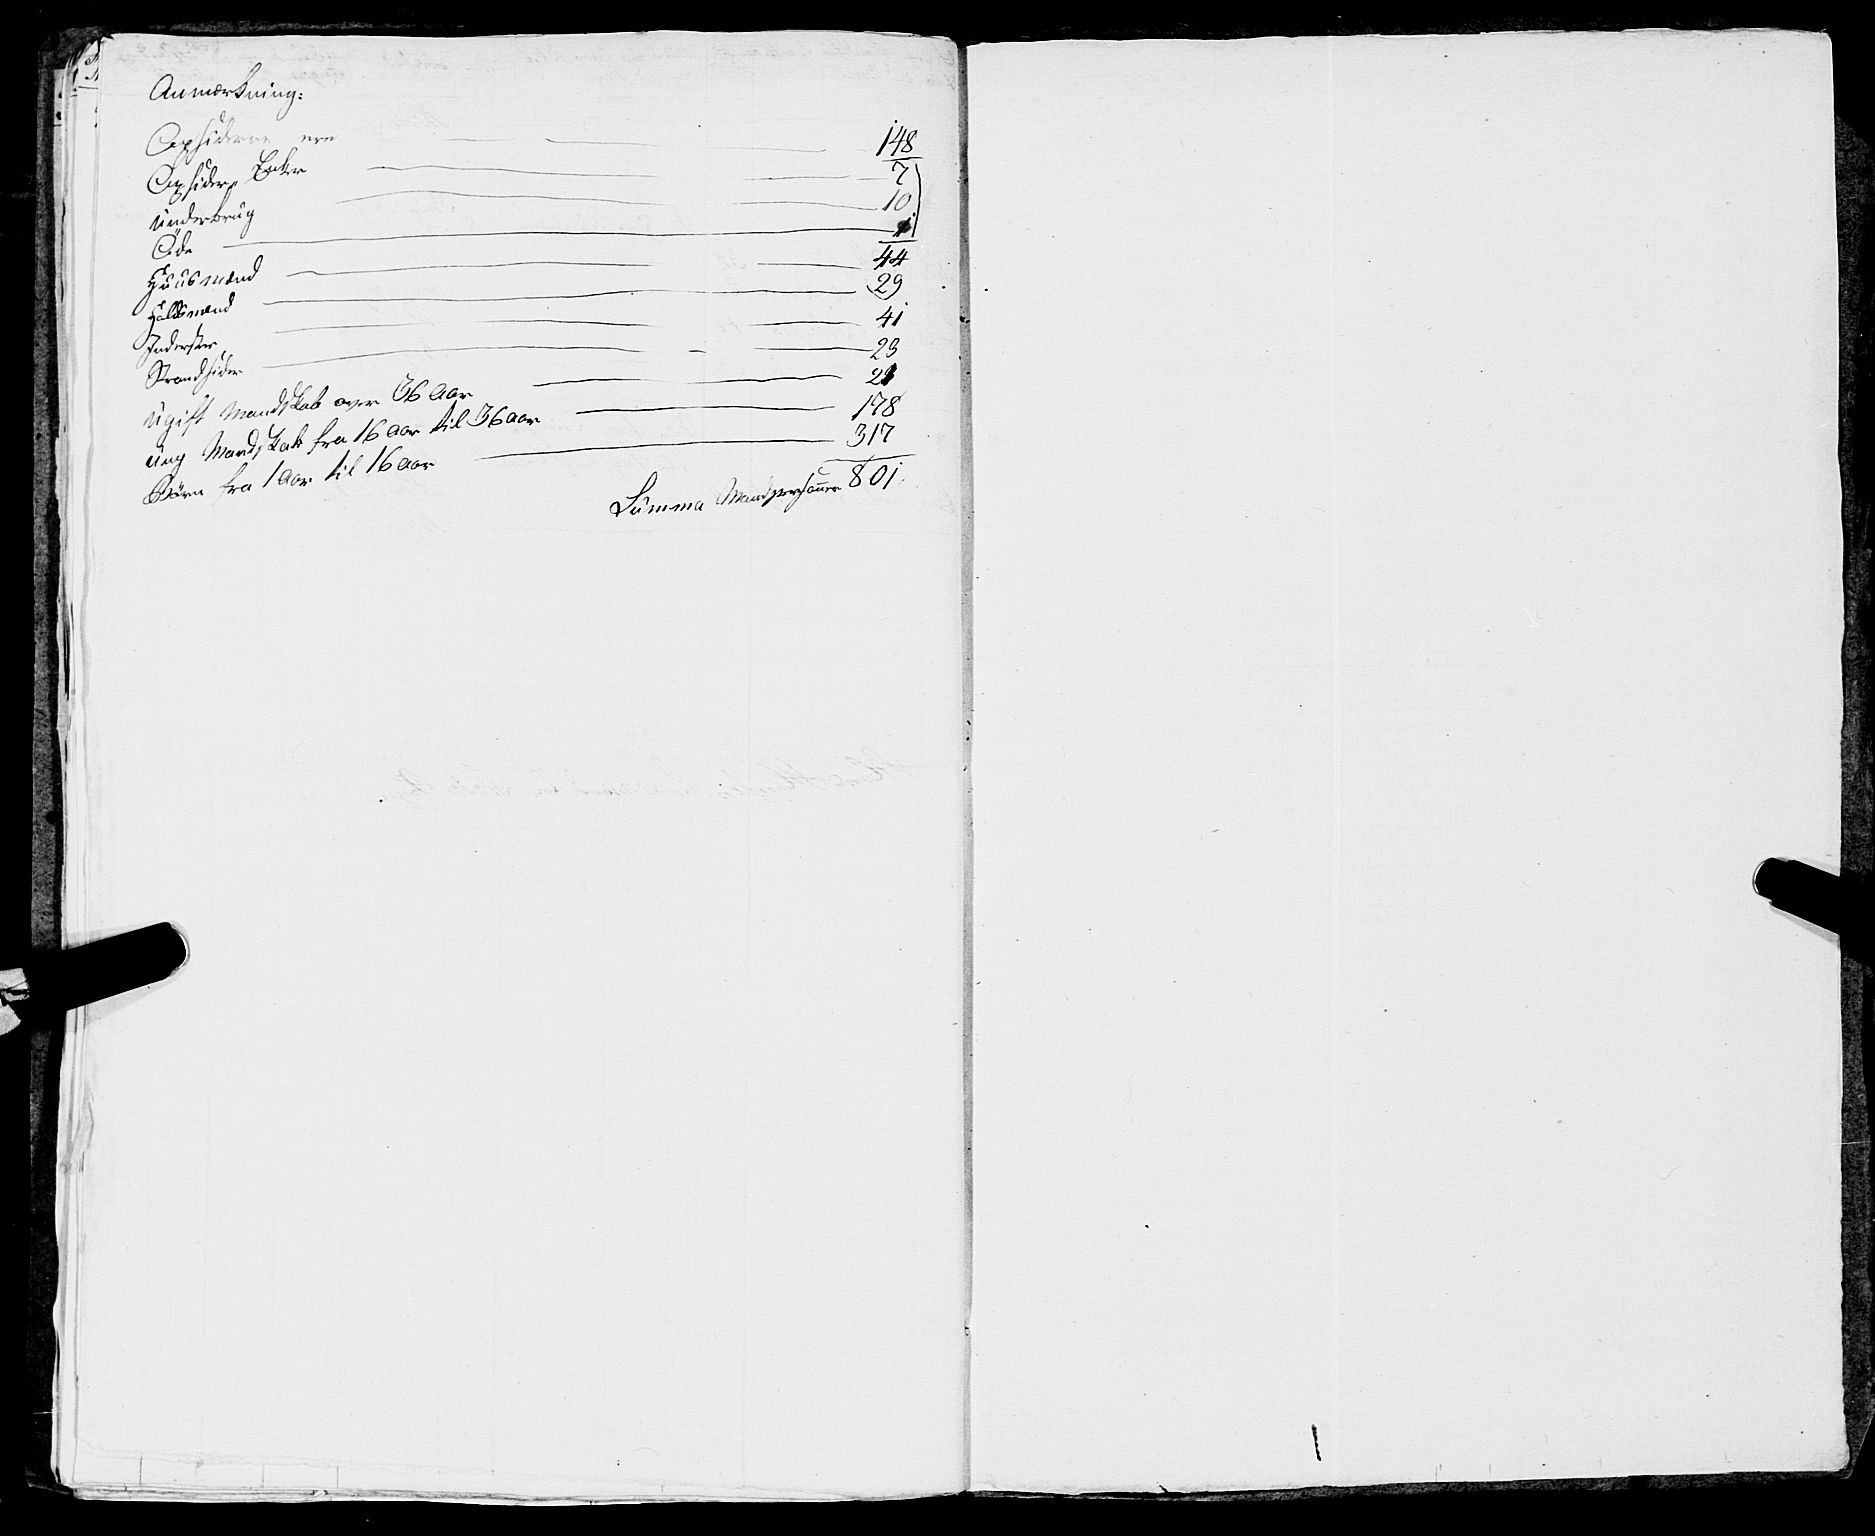 Anmærkning:
Opsiderne ere 148
Opsidere Enker 7
Underbrug 10
Øde 1
Huusmænd 44
Holdsmænd 29
Inderster 41
Strandsider 23
Ugift Mandskab over 36 Aar 21
Ung Mandskab fra 16 Aar til 36 Aar 178
Børn fra 1 Aar til 16 Aar 317
Summa Mandpersoner 801